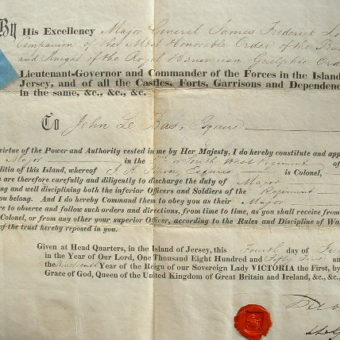 By His Excellency Major General James Frederick
Companion of the Most Honorable Order of the
and Knight of the Royal Hanoverian Guelphic Order
Lieutenant-Governor and Commander of the Forces in the Island
Jersey, and of all the Castles, Forts, Garrisons and Dependenc
in the same, &c., &c., &c.
To John Le Bas, Esquire
virtue of the Power and Authority vested in me by Her Majesty, I do hereby constitute and app
Major in the or South West Regiment
ilitia of this Island, whereof Esquire is Colonel,
are therefore carefully and diligently to discharge the duty of Major
ing and well disciplining both the inferior Officers and Soldiers of the Regiment
you belong. And I do hereby Command them to obey you as their Major
re to observe and follow such orders and directions, from time to time, as you shall receive from
Colonel, or from any other your superior Officer, according to the Rules and Discipline of Wa
of the trust hereby reposed in you.
Given at Head Quarters, in the Island of Jersey, this Fourth day of
in the Year of Our Lord, One Thousand Eight Hundred and Fifty
and the Year of the Reign of our Sovereign Lady VICTORIA the First, by
Grace of God, Queen of the United Kingdom of Great Britain and Ireland, &c., &c